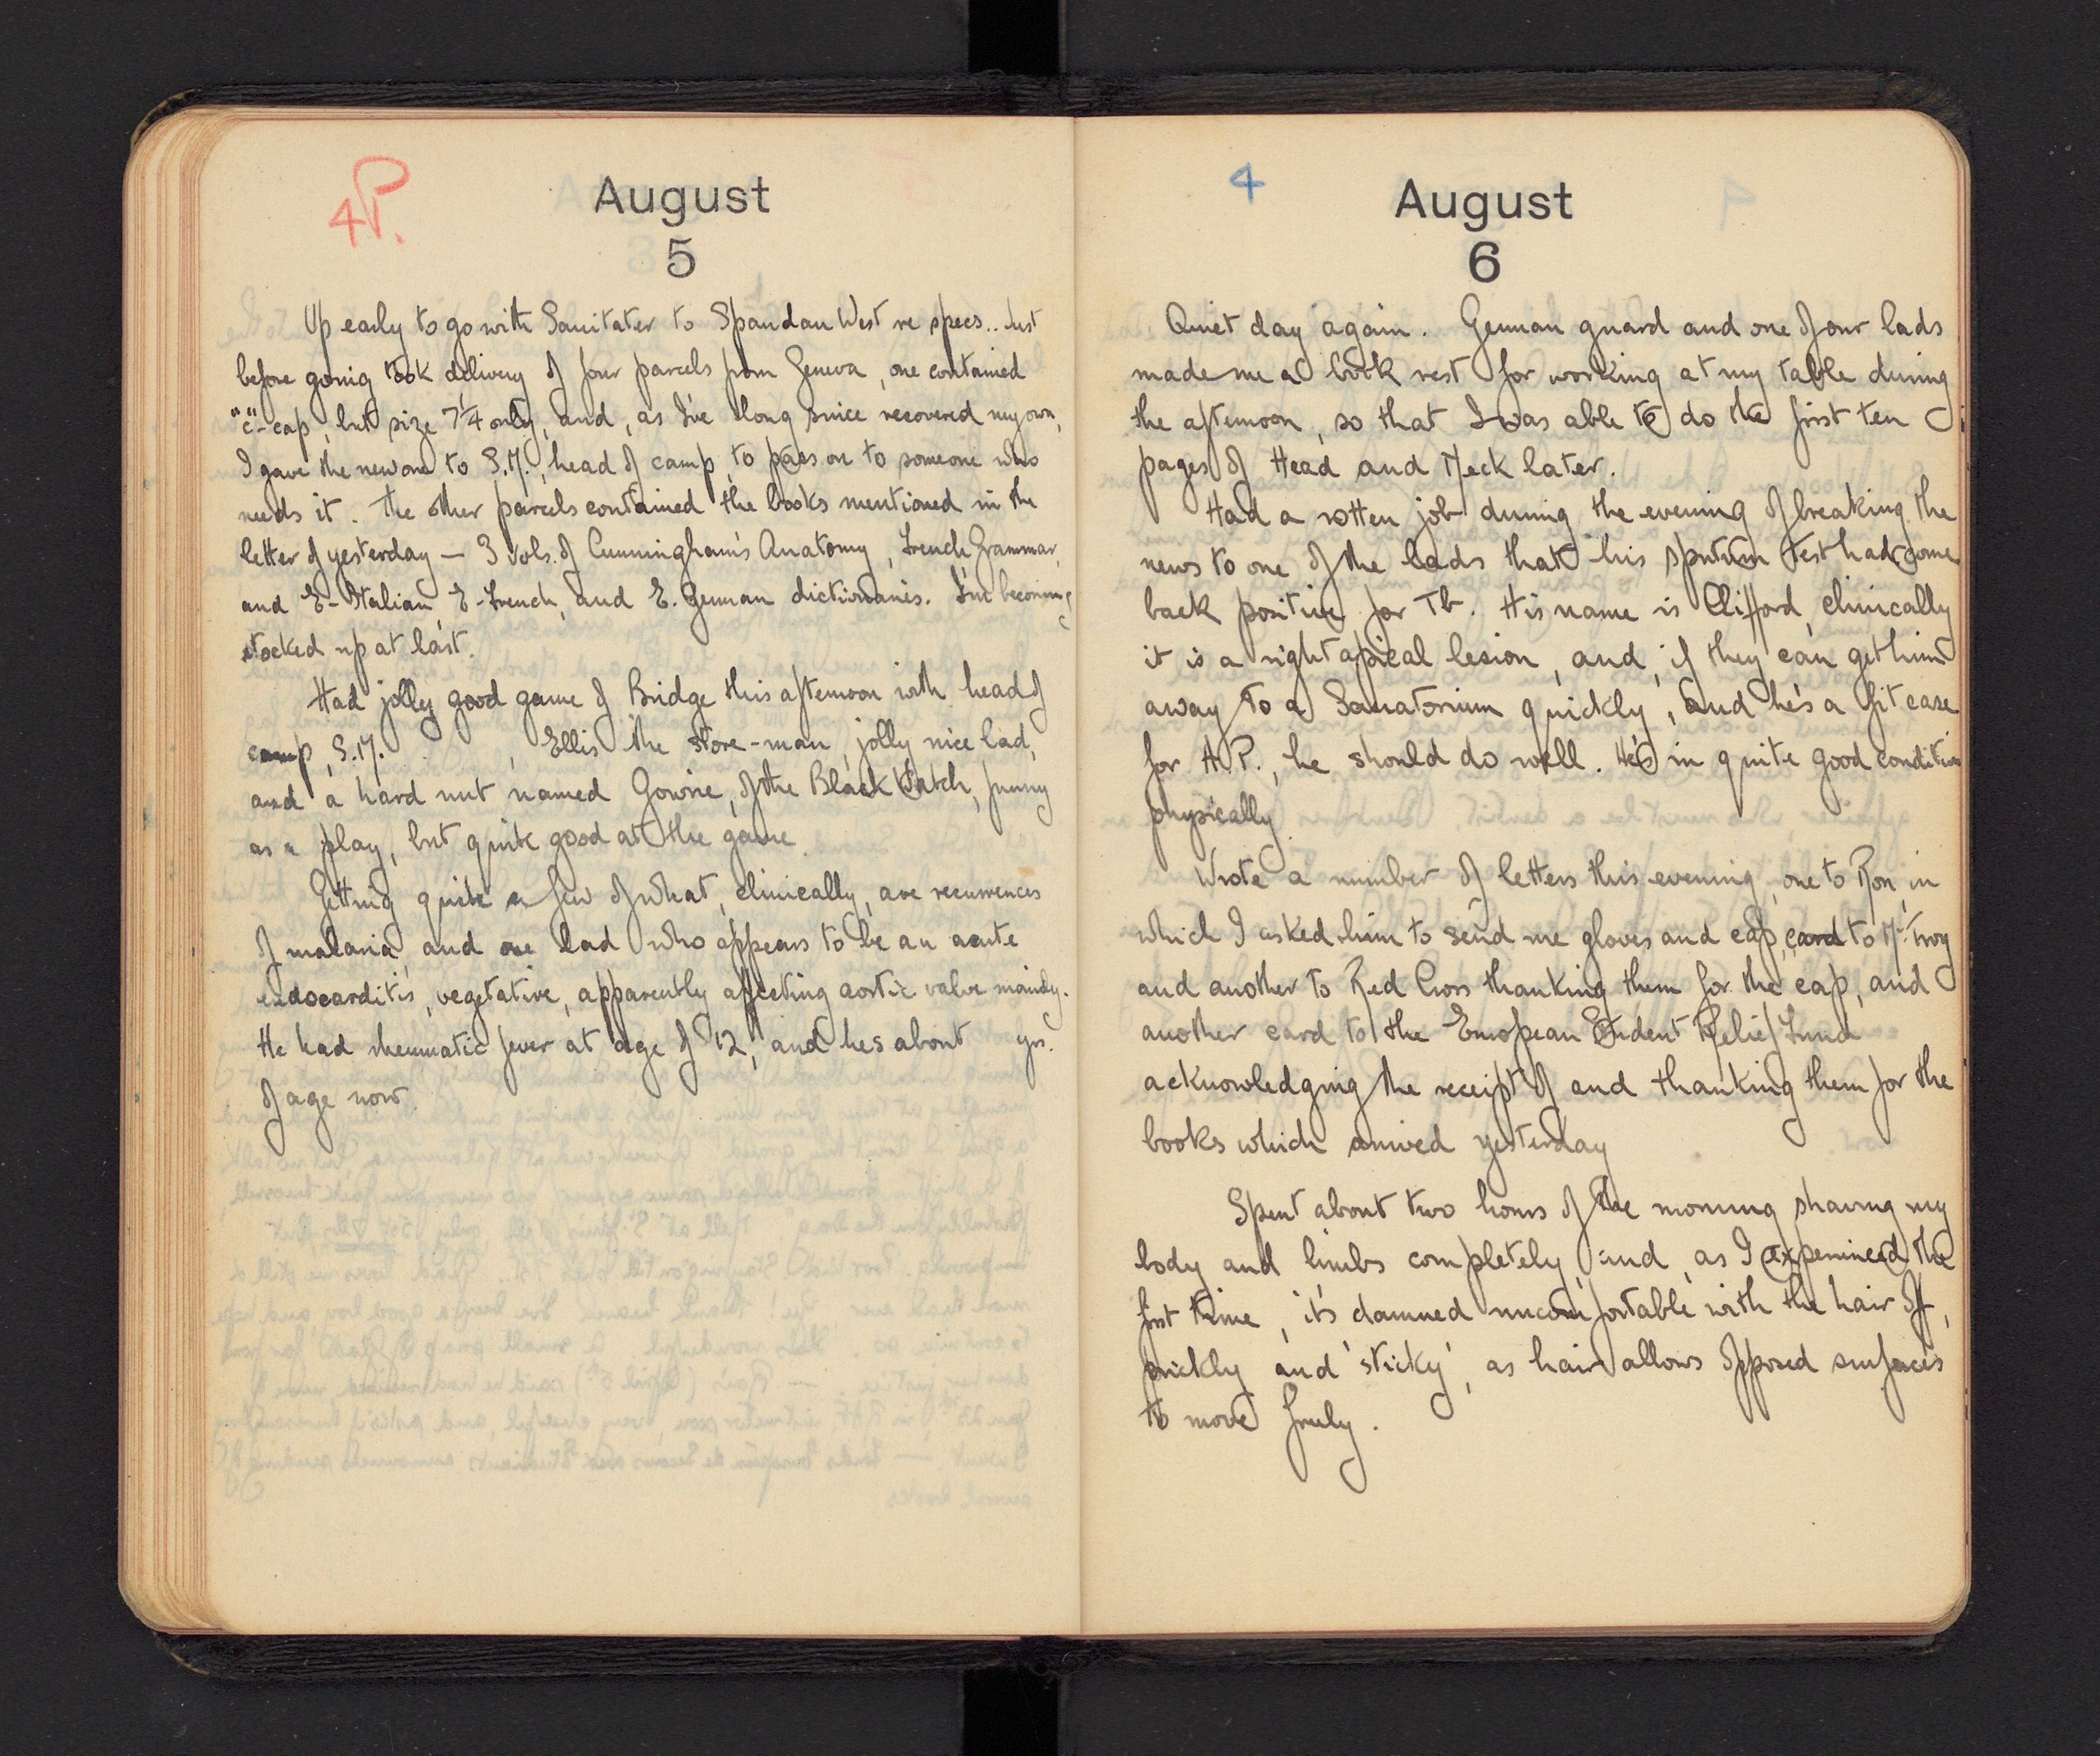 4P.
August
5
Up early to go with Sanitater to Spandau West re specs.. Just
before going took delivery of four parcels from Geneva, one contained
"c"-cap, but size 7¼ only, and, as I've long since recovered my own,
I gave the new one to S.M., head of camp, to pass on to someone who
needs it. The other parcels contained the books mentioned in the
letter of yesterday — 3 Vols. of Cunningham's Anatomy, French Grammar,
and E-Italian, E-French, and E. German dictionaries. I'm becoming
stocked up at last.
Had jolly good game of Bridge this afternoon with head of
camp, S.M. , Ellis the store-man, jolly nice lad,
and a hard nut named Gowrie, of the Black Watch, funny
as a play, but quite good at the game.
Getting quite a few of what, clinically, are recurrences
of malaria and one lad who appears to be an acute
endocarditis, vegetative, apparently affecting aortic valve mainly.
He had rheumatic fever at age of 12, and he's about yrs.
of age now.
4
August
6
Quiet day again. German guard and one of our lads
made me a book rest for working at my table during
the afternoon, so that I was able to do the first ten
pages of Head and Neck later.
Had a rotten job during the evening of breaking the
news to one of the lads that his sputum test had come
back positive for Tb. His name is Clifford, clinically
it is a right apical lesion, and, if they can get him
away to a Sanatorium quickly, and he's a fit case
for A.P., he should do well. He's in quite good condition
physically.
Wrote a number of letters this evening, one to Ron, in
which I asked him to send me gloves and cap, card to Mr.
and another to Red Cross thanking them for the cap, and
another card to the European Student Relief Fund
acknowledging the receipt of and thanking them for the
books which arrived yesterday
Spent about two hours of the morning shaving my
body and limbs completely, and, as I experienced the
first time, it's damned uncomfortable with the hair off,
prickly and 'sticky', as hair allows opposed surfaces
to move freely.